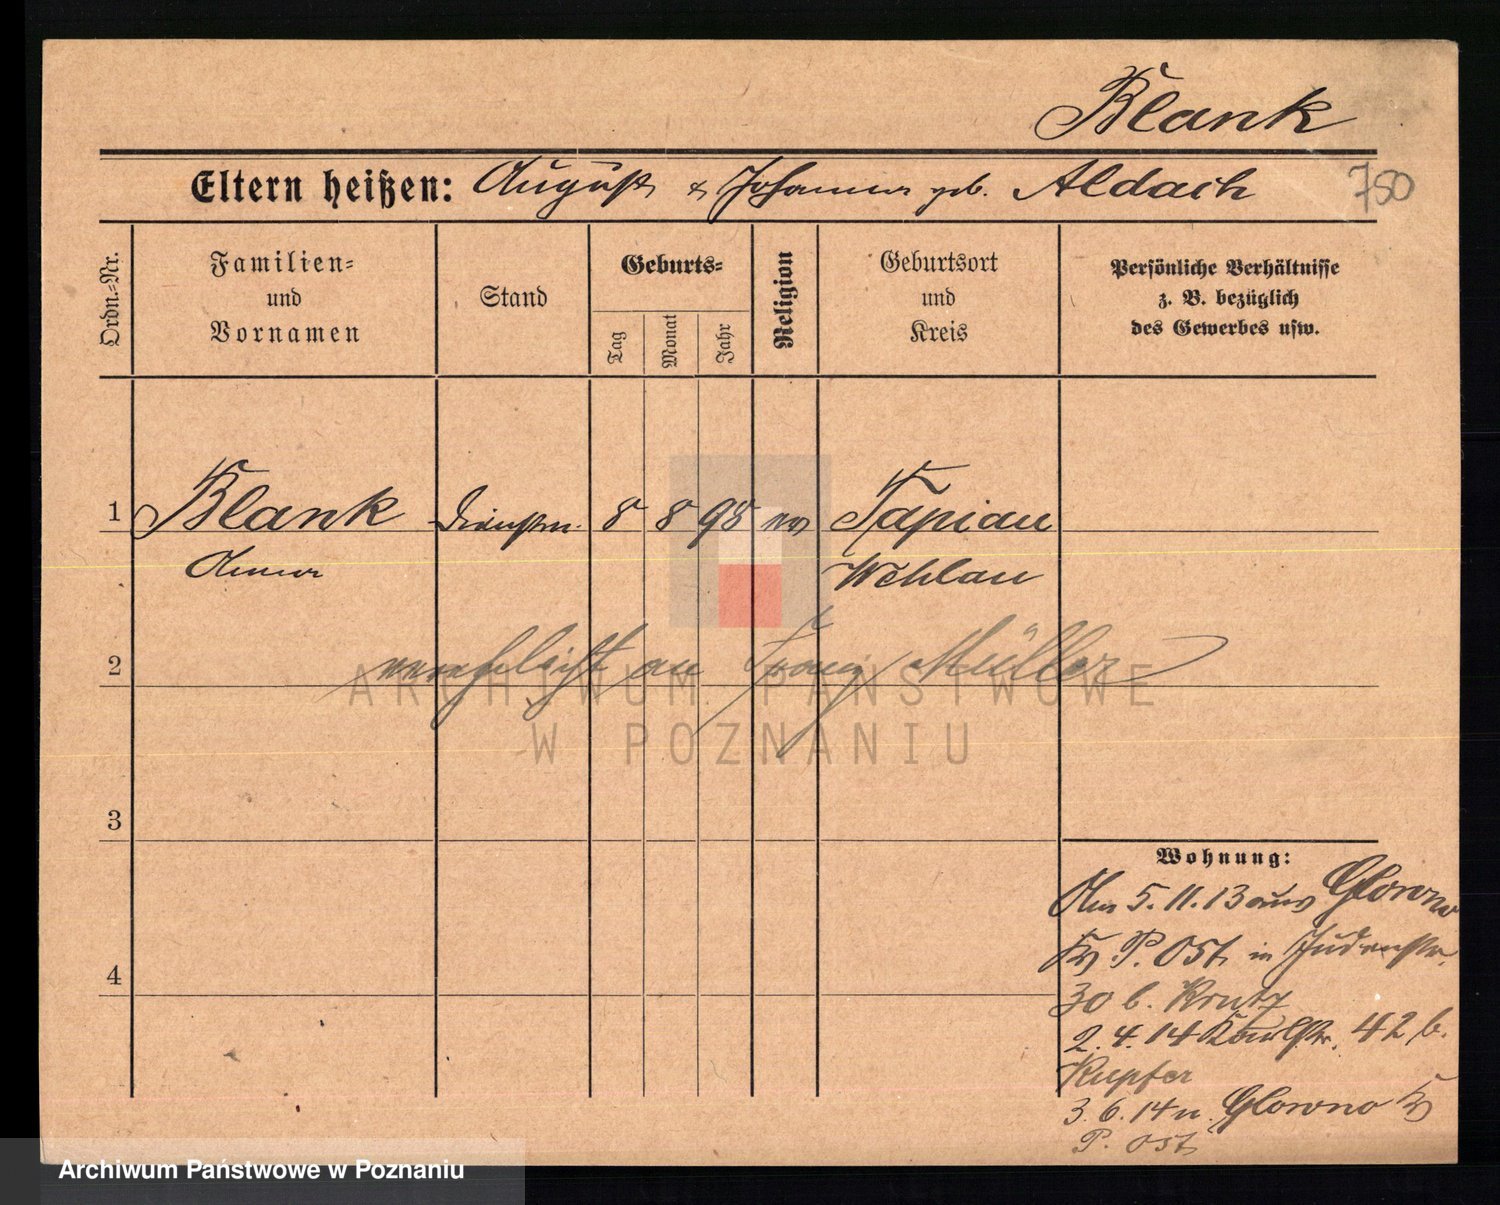 Blank
Eltern heißen: August & Johanna geb. Aldach
750
Ordn.-Nr.
Familien-
und
Vornamen
Stand
Geburts-
Tag
Monat
Jahr
Religion
Geburtsort
und
Kreis
Persönliche Verhältnisse
z. B. bezüglich
des Gewerbes usw.
1 Blank Dienstm. 8 8 98 ev Tapiau
Anna Wehlau
2 verehelicht an Franz Müller
3
4
Wohnung:
Am 5.11.13 aus Glowno
Kr P. Ost in Judenstr.
30 b. Krutz
2.4.14 12b.
Kupfer
3.6.14 n. Glowno Kr
P. Ost
ARCHIWUM PAŃSTWOWE
W POZNANIU
Archiwum Państwowe w Poznaniu